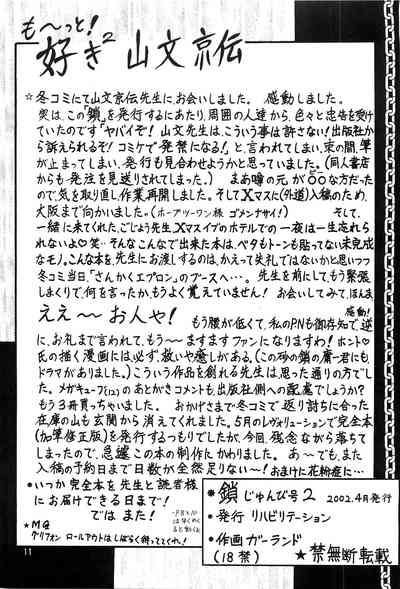 も～っと!
好き² 山文京伝
☆冬コミにて山文京伝先生に、お会いしました。 感動しました。
実は、この「鎖」を発行するにあたり、周囲の人達から、色々と忠告を受け
ていたのです「ヤバイぞ!山文先生は、こういう事は許さない!出版社から
訴えられるぞ!コミケで発禁になる!」と、言われてしまい、束の間、筆
が止まってしまい、発行も見合わせようかと思っていました。(同人書店
からも発注を見送りされてしまった。) まあ噂の元が○○な方だった
ので、気を取り直し、作業再開しました。そしてXマスに(外道)入稿のため、
大阪まで向かいました。(ホープツーワン様 ゴメンナサイ!) そして、
一緒に来てくれた、ごじょう先生Xマスイブのホテルでの一夜は一生忘れら
れないよ♡笑… そんなこんなで出来た本は、ベタもトーンも貼ってない未完成
なモノ。こんな本を、先生にお渡しするのは、かえって失礼ではないかと思いつつ
冬コミ当日「さんかくエプロン」のブースへ…。先生を前にしてもう緊張
しまくりで、何を言ったか、もうよく覚えていません!お会いしてみて、ほんま
ええ～お人や! 感動!
もう腰が低くて、私のPNも御存知で、逆
に、お礼まで言われて、もう～ますますファンになりますわ!ホント♡
氏の描く漫画には、必ず、救いや癒しがある。
ドラマがありました。)こういう作品を創れる先生は思った通りの方でし
た。メガキューブのあとがきコメントも、出版社側への配慮でしょうか?
もう3冊買っちゃいました。 おかげさまで冬コミで返り討ちに合った
在庫の山も玄関から消えてくれました。5月のレヴォリューションで完全本
(加筆修正版)を発行するつもりでしたが、今回、残念ながら落ちて
しまったので、急遽この本の制作とかわりました。 あ～でも、また
入稿の予約日まで日数が全然足りない～!おまけに花粉症に…
●いつか完全本を先生と読者様
にお届けできる日まで!
では また!
★MG
グリフォン ロールアウトはしばらく待っててくれ!
*鎖じゅんび号2 2002.4月発行
*発行 リハビリテーション
*作画 ガーランド
(18禁) ★禁無断転載
11